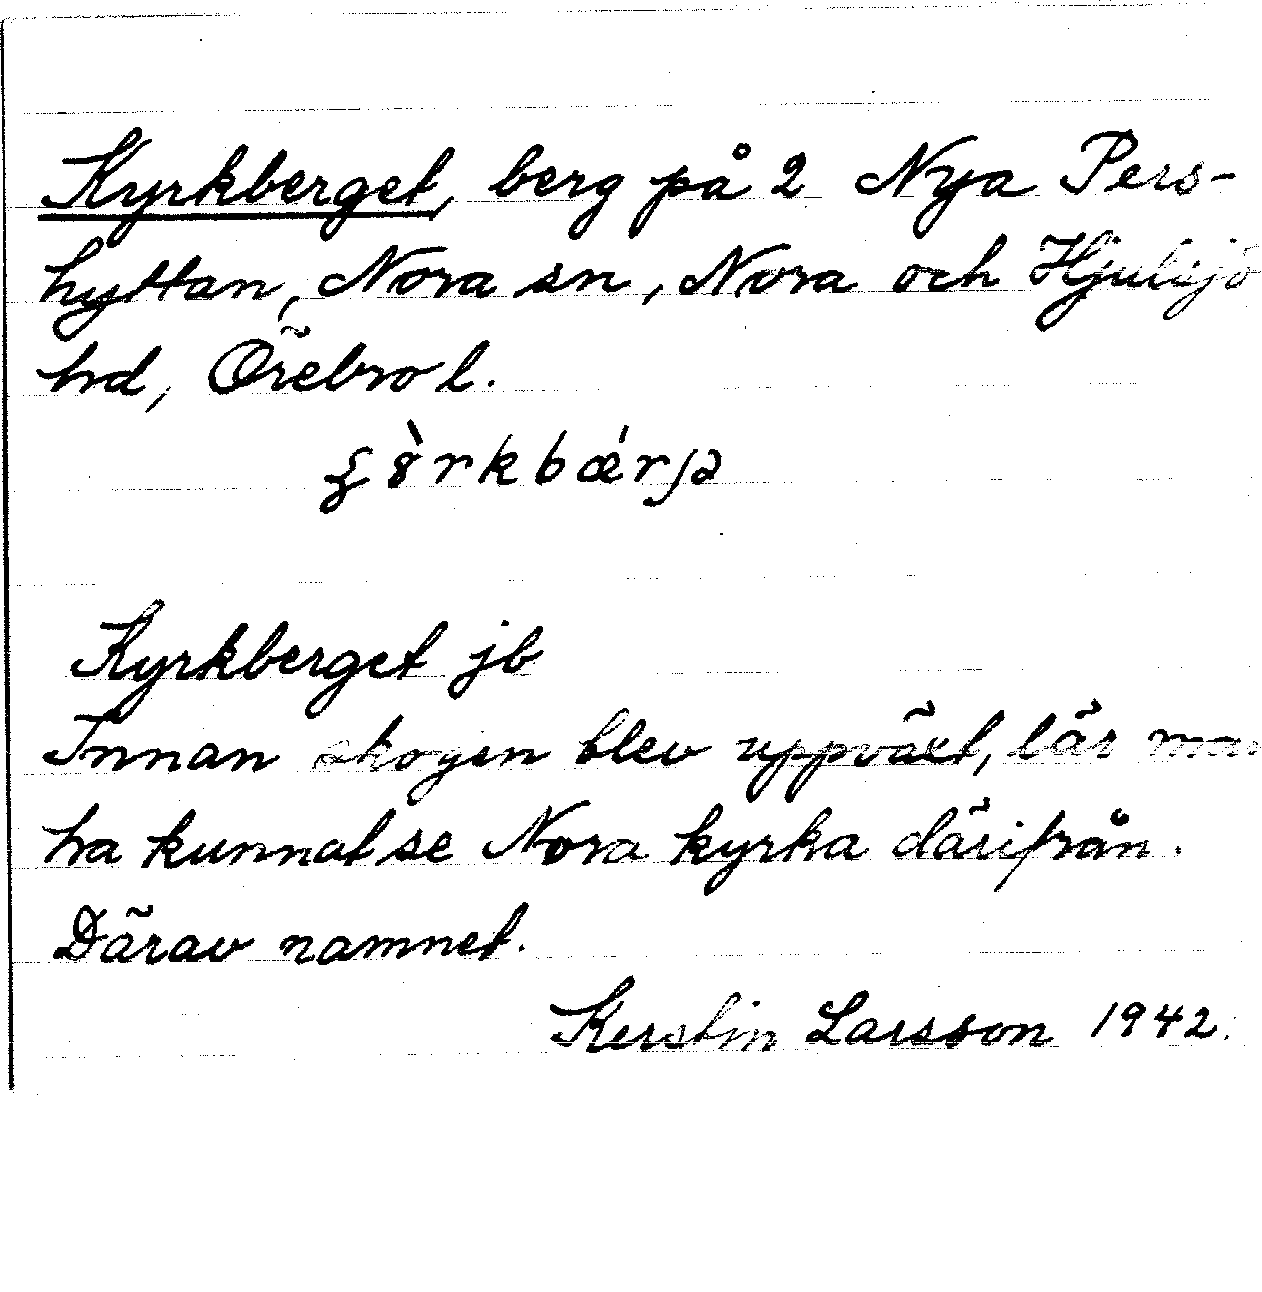 Kyrkberget, berg på 2 Nya Pers-
hyttan, Nora sn, Nora och Hjulsjö
hrd, Örebro l.
Kyrkberget jb
Innan skogen blev uppväxt, lär man
ha kunnat se Nora kyrka därifrån.
Därav namnet.
Kerstin Larsson 1942.